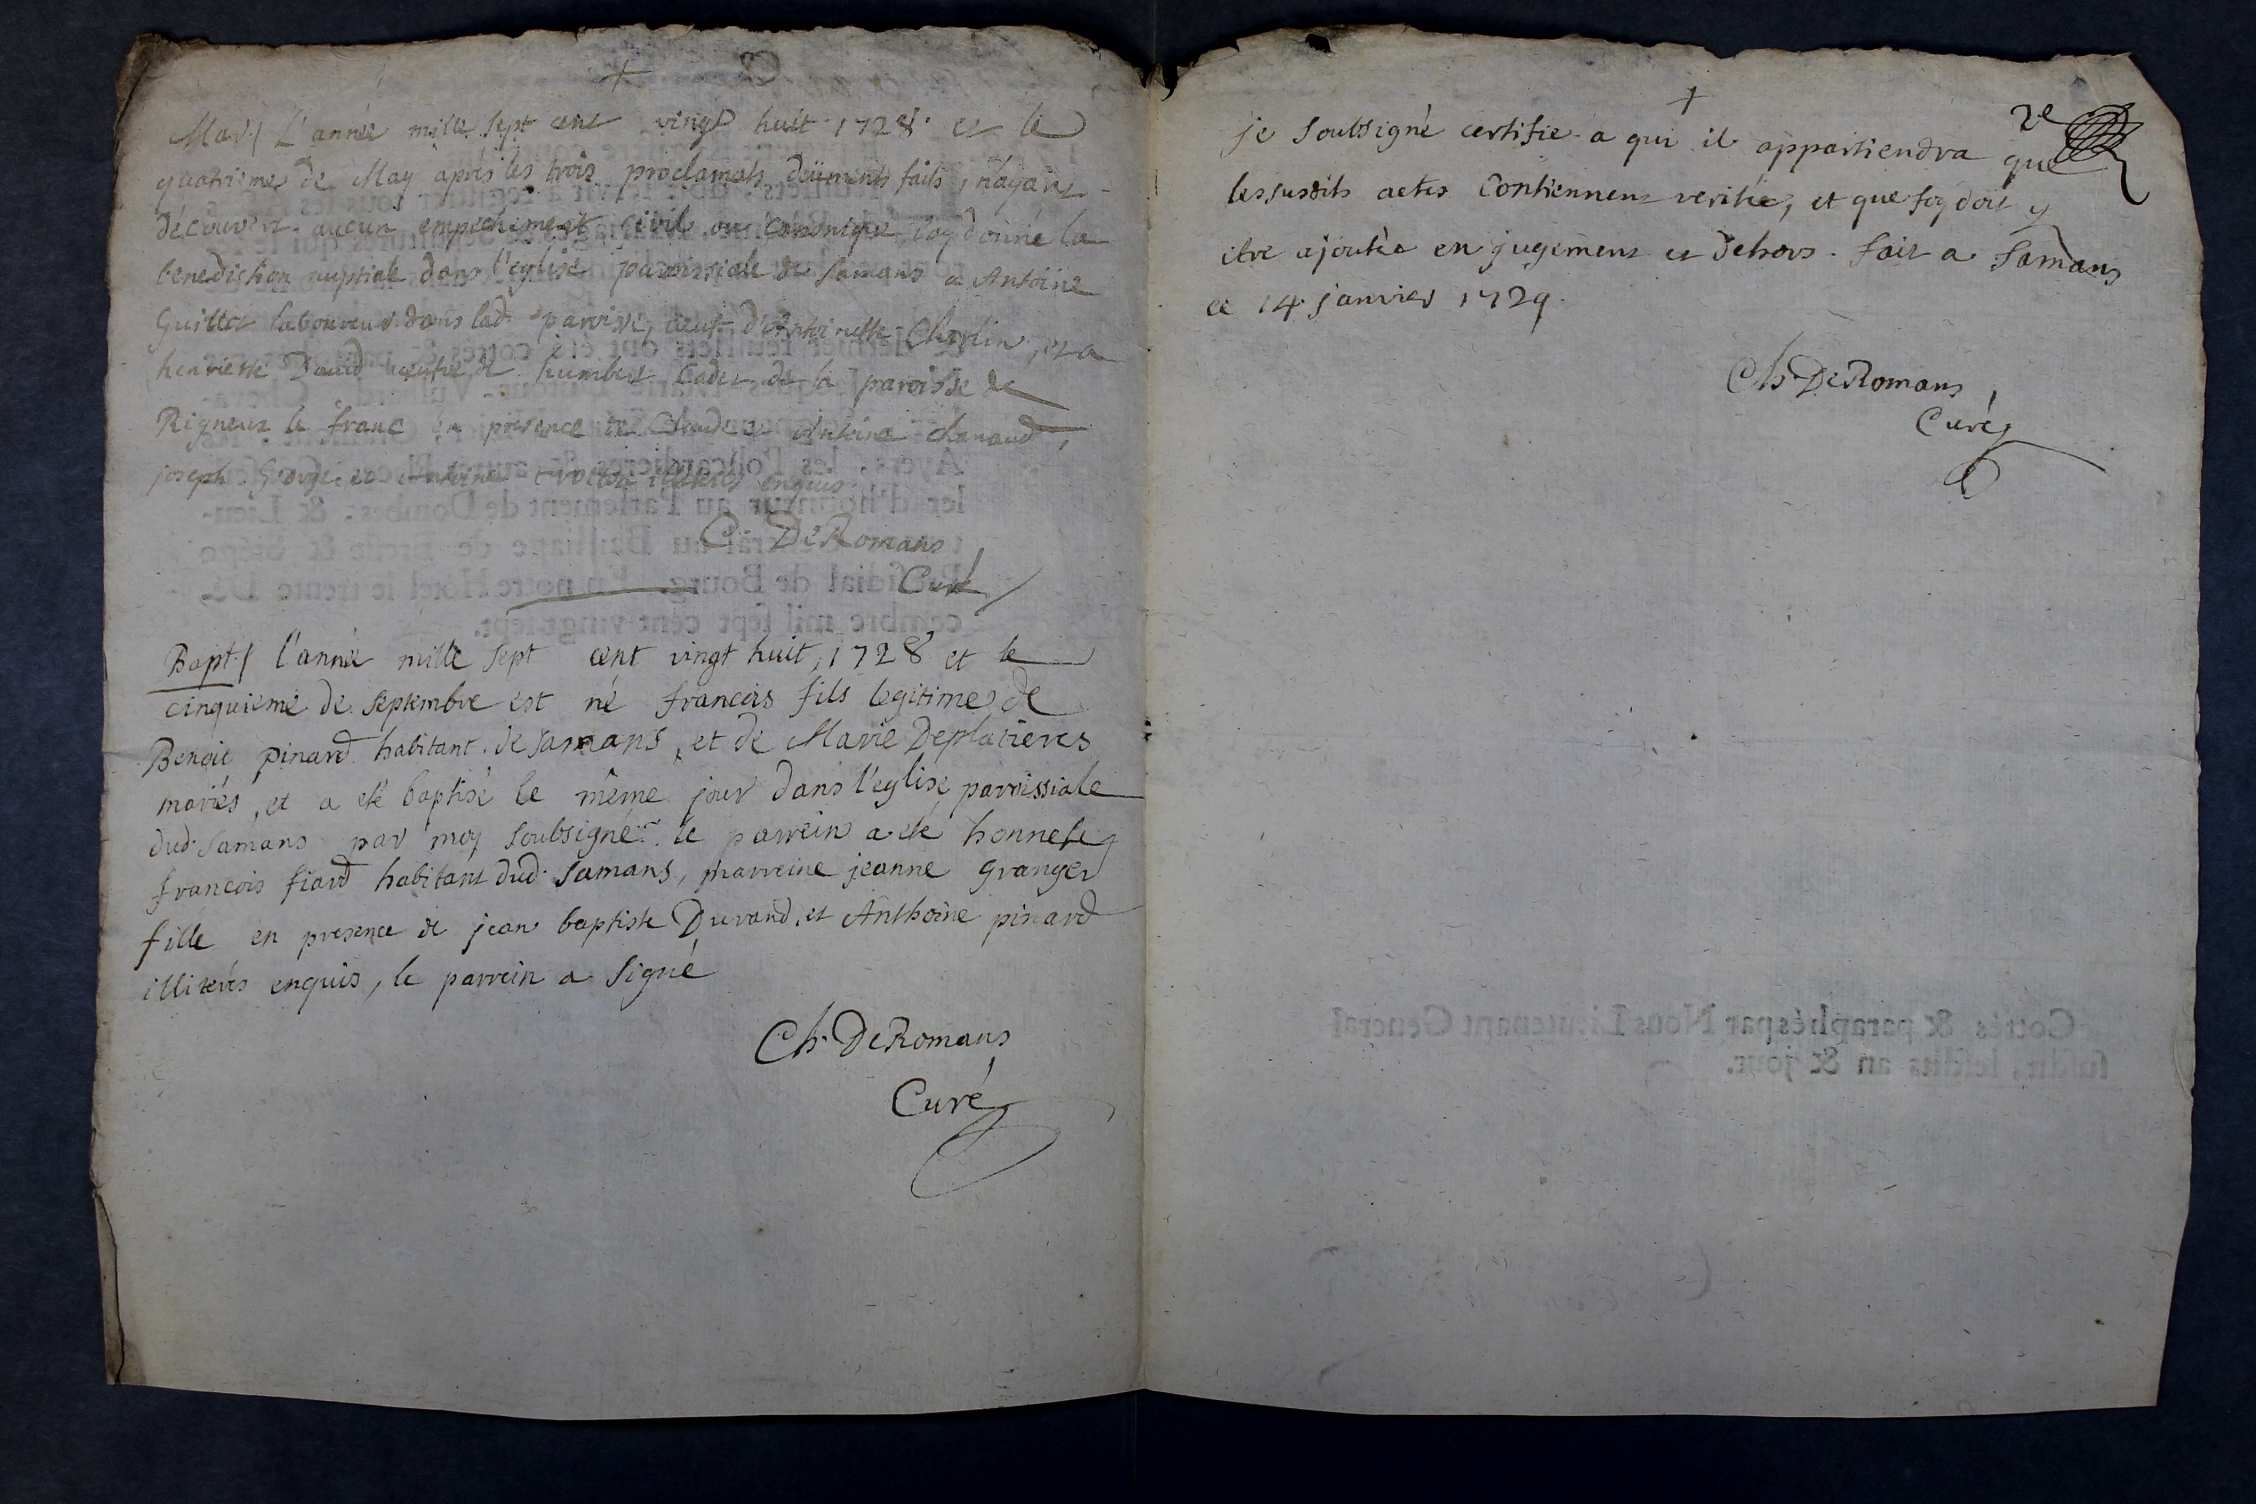 +
Mar./ L'année mille sept cent vingt huit 1728. et le
quatrieme de May apres les trois proclamats deüments faits, n'ayant
découvert aucun empechement civil ou canonique j'ay donné la
benediction nuptiale dans l'eglise parroissiale de Samans a Antoine
Guillot laboureur dans lad. parroisse, veuf d'Antoinette et a
henriette David veufve de humbert Cadet de la paroisse de
Rigneux le franc en presence de Claude et Antoine chanaud,
joseph George et Antoine illiterés enquis
C. DeRomans
Curé
Bapt./ l'année mille sept cent vingt huit, 1728 et le
cinquieme de septembre est né francois fils legitime de
Benoit pinard habitant de Samans, et de Marie Deplatieres
mariés, et a eté baptisé le même jour dans l'eglise parroissiale
dud. Samans par moy soubsigné. le parrein a eté honnete
francois fiard habitant dud. Samans, marreine jeanne granger
fille en presence de jean baptiste Durand, et Anthoine pinard
illiterés enquis, le parrein a signé
Ch. DeRomans
Curé
+
2e
je soubsigné certifie a qui il appartiendra que
lessusdits actes contiennent veritée, et que foy doit y
etre ajoutée en jugement et dehors. fait a Samans
ce 14 janvier 1729.
Ch. DeRomans
Curé